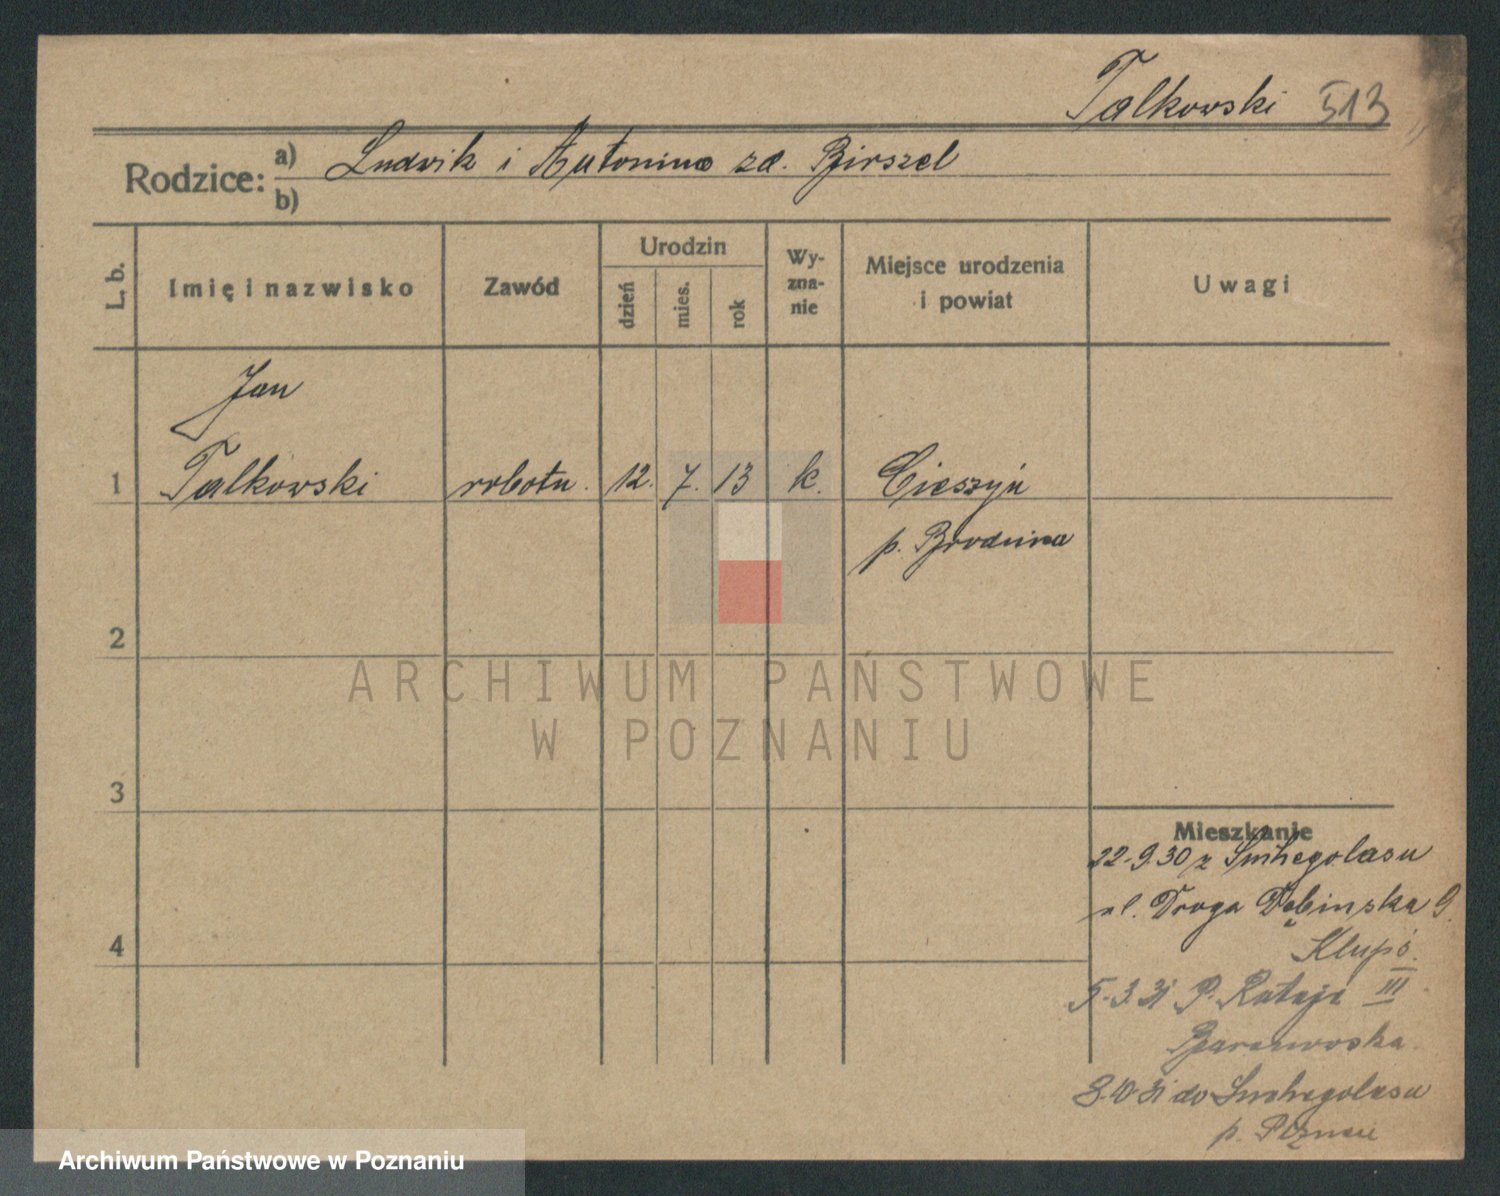 Talkowski 513
Rodzice: a) Ludwik i Antonina zd. Birszel
b)
L. b. Imię i nazwisko Zawód Urodzin dzień mies. rok Wyznanie Miejsce urodzenia i powiat Uwagi
Jan
1 Talkowski robotn. 12. 7. 13 k. Cieszyń
p. Brodnica
2
3
4
Mieszkanie
22-9.30 z Smhegolasu
ul. Droga Dębińska 9.
5-3.31 P. Rataje III
8-10-31 do Smhegolasu
p. Poznań
ARCHIWUM PAŃSTWOWE
W POZNANIU
Archiwum Państwowe w Poznaniu